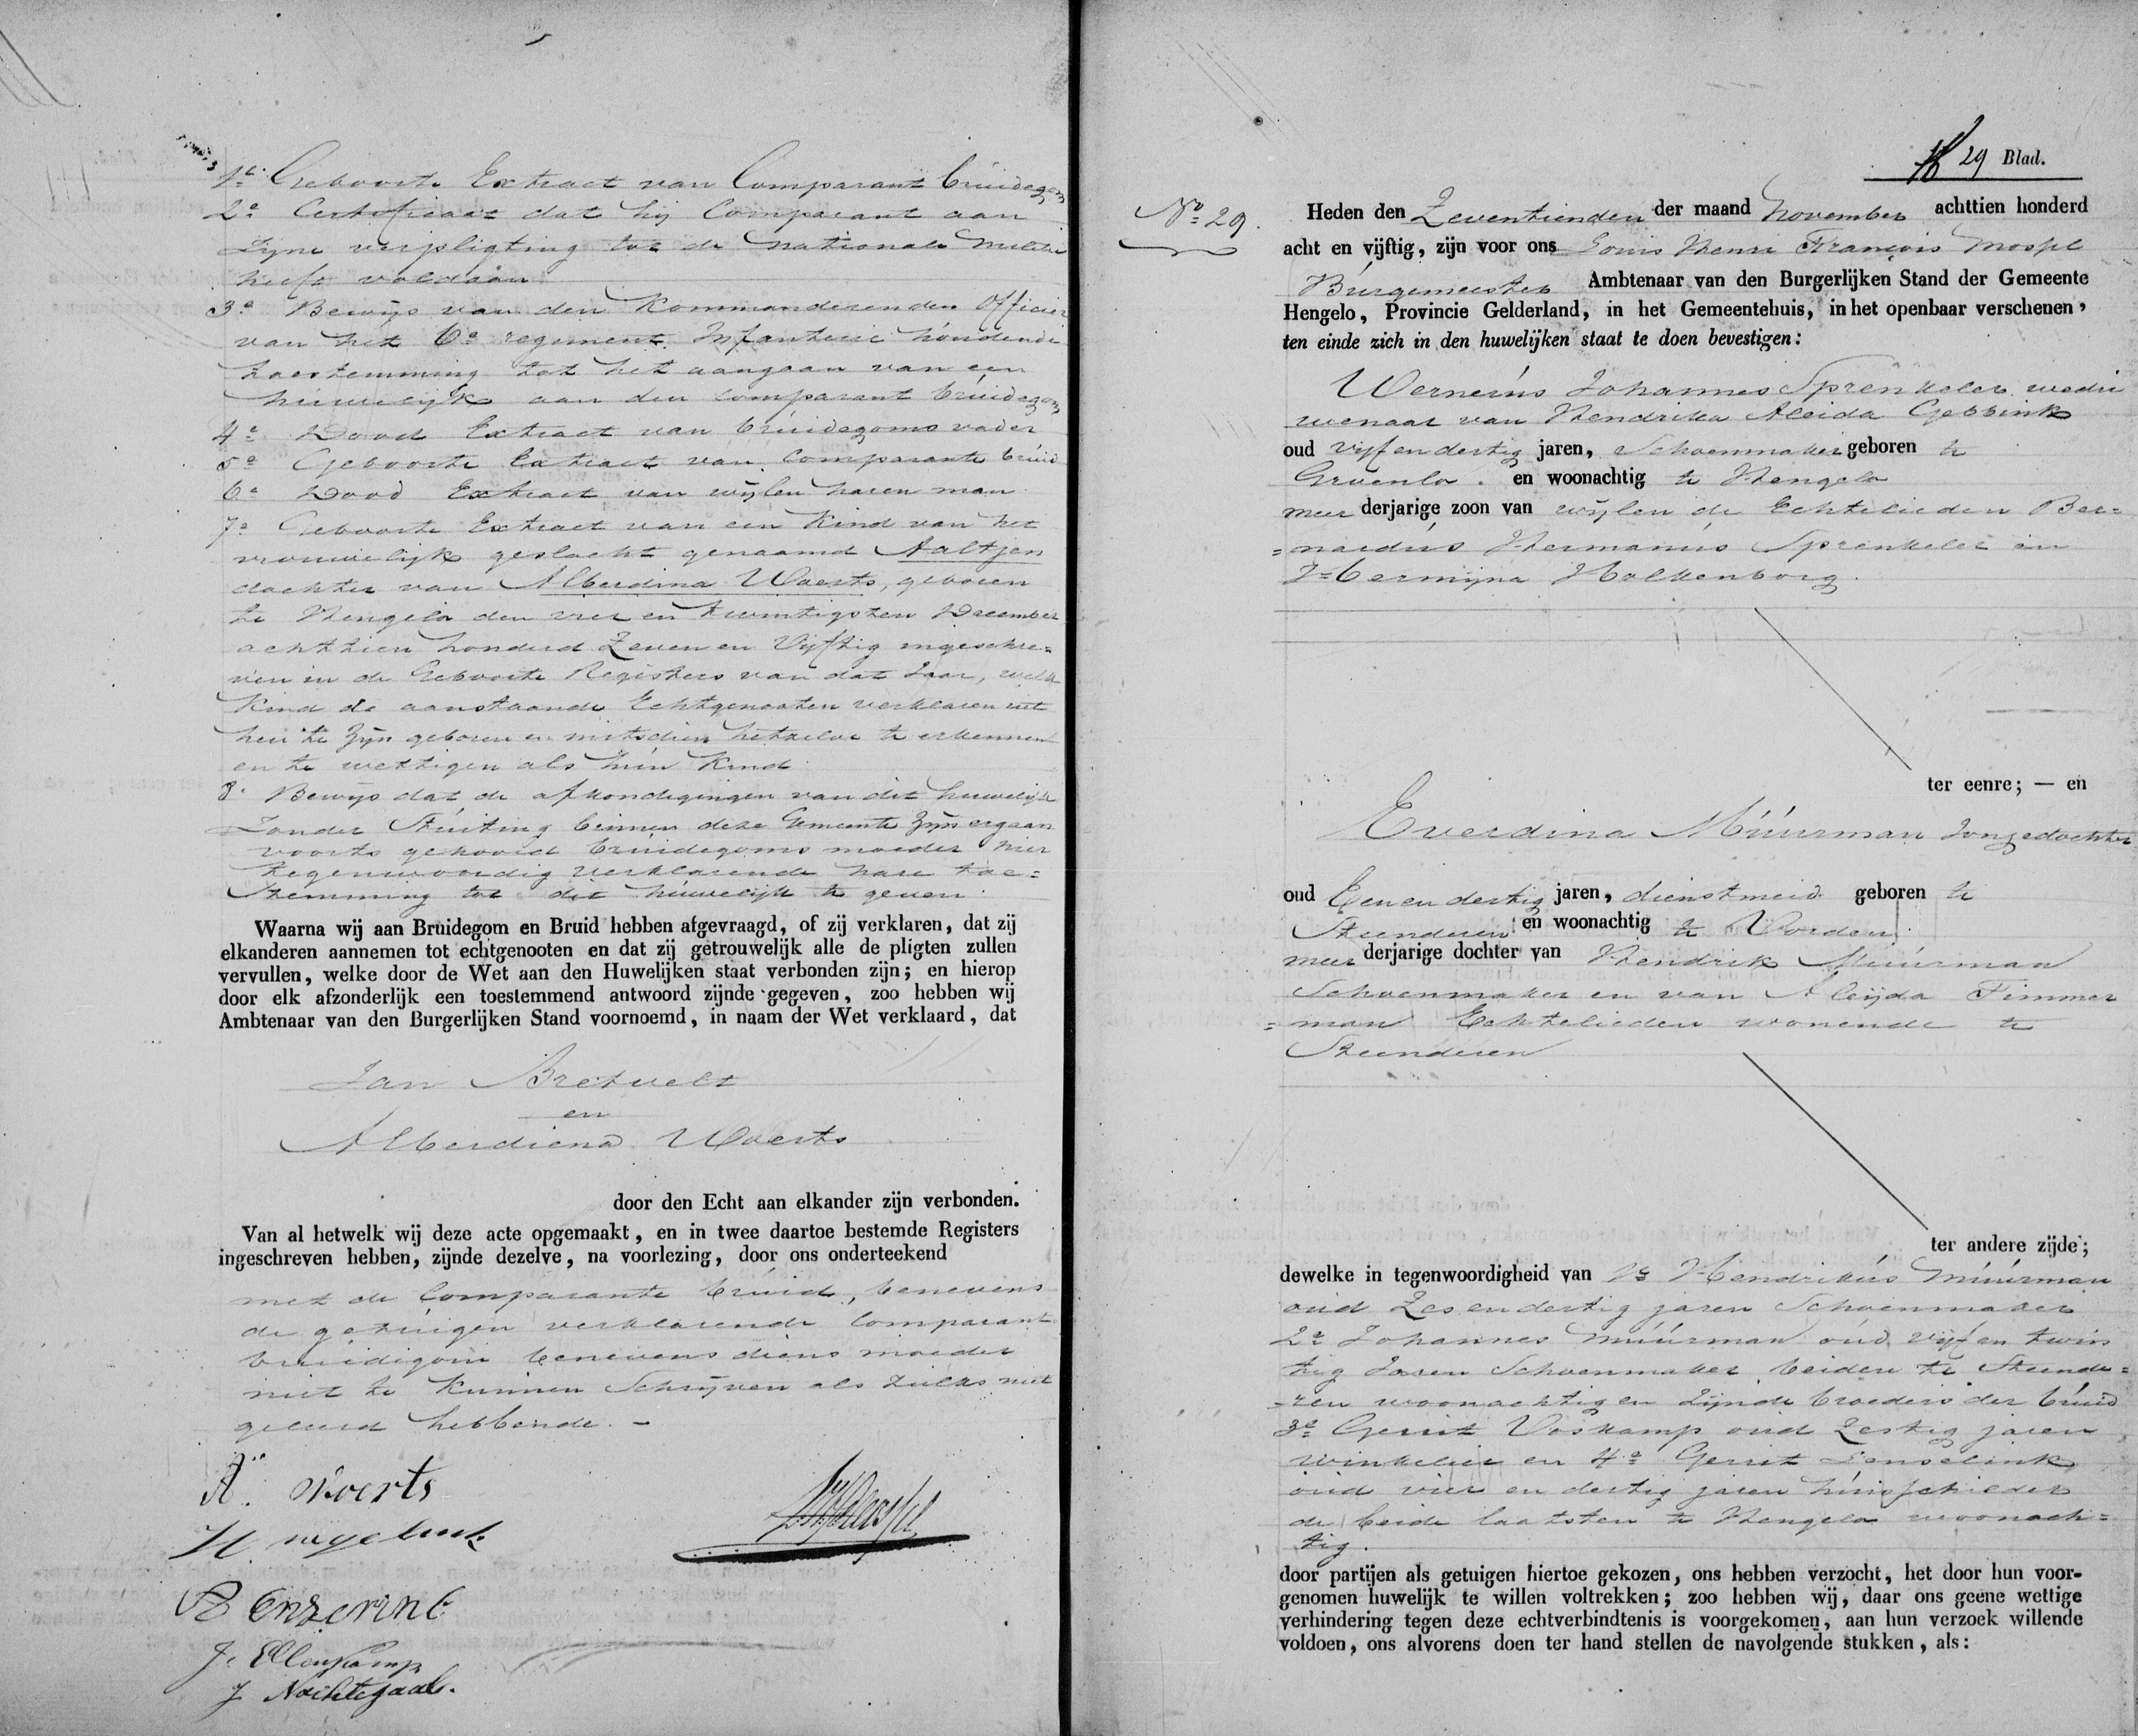 1e Geboorte Extract van Comparant bruidegom
2e Certificaat dat hij Comparant aan
Zyne verpligting tot de nationale militie
heeft voldaan
3e Bewijs van den Kommanderenden Officier
van het 6e regiment Infanterie houdende
toestemming tot het aangaan van een
huwelijk aan den Comparant bruidegom
4e Dood Extract van bruidegoms vader
5e Geboorte Extract van Comparante bruid
6e Dood Extract van wijlen haren man
7e Geboorte Extract van een Kind van het
vrouwelijk geslacht genaamd Aaltjen
dochter van Alberdina Woerts, geboren
te Hengelo den vier en twintigsten December
achttien honderd Zeven en Vijftig ingeschre=
ven in de Geboorte Registers van dat Jaar, welk
Kind de aanstaande Echtgenooten verklaren uit
hen te Zijn geboren en mitsdien hetzelve te erkennen
en te wettigen als hun Kind
8e Bewijs dat de afkondigingen van dit huwelijk
Zonder Stuiting binnen deze Gemeente Zijn ergaan
voorts gehoord bruidegoms moeder hier
tegenwoordig verklarende hare toe=
stemming tot dit huwelijk te geven.
Waarna wij aan Bruidegom en Bruid hebben afgevraagd, of zij verklaren, dat zij
elkanderen aannemen tot echtgenooten en dat zij getrouwelijk alle de pligten zullen
vervullen, welke door de Wet aan den Huwelijken staat verbonden zijn; en hierop
door elk afzonderlijk een toestemmend antwoord zijnde gegeven, zoo hebben wij
Ambtenaar van den Burgerlijken Stand voornoemd, in naam der Wet verklaard, dat
Jan Bretvelt
en
Alberdiena Woerts
door den Echt aan elkander zijn verbonden.
Van al hetwelk wij deze acte opgemaakt, en in twee daartoe bestemde Registers
ingeschreven hebben, zijnde dezelve, na voorlezing, door ons onderteekend
met de Comparante bruid, benevens
de getuigen verklarende Comparant
bruidigom benevens diens moeder
niet te Kunnen Schrijven als Zulks niet
geleerd hebbende. –
A. Woerts
J. Ellenkamp
J Nachtegaal.
29 Blad.
No 29.
Heden den Zeventienden der maand November achttien honderd
acht en vijftig, zijn voor ons Louis Henri François Mospel
Burgemeester Ambtenaar van den Burgerlijken Stand der Gemeente
Hengelo, Provincie Gelderland, in het Gemeentehuis, in het openbaar verschenen,
ten einde zich in den huwelijken staat te doen bevestigen:
Wernerus Johannes Sprenkeler wedu
wenaar van Hendrika Aleida Gebbink
oud vijf en dertig jaren, Schoenmaker geboren te
Groenlo. en woonachtig te Hengelo
meer derjarige zoon van wijlen de Echtelieden Ber=
=nardus Hermanus Sprenkeler en
Hermijna Holkenborg.
ter eenre; — en
Everdina Muurman Jongedochter
oud Een en dertig jaren, dienstmeid geboren te
Steenderen en woonachtig te Vorden
meer derjarige dochter van Hendrik Muurman
Schoenmaker en van Aleijda Timmer
=man Echtelieden wonende te
Steenderen
ter andere zijde;
dewelke in tegenwoordigheid van 1e Hendrikus Muurman
oud Zes en dertig jaren Schoenmaker
2e Johannes Muurman oud vijf en twin
tig Jaren Schoenmaker beiden te Steende=
=ren woonachtig en Zijnde broeders der bruid
3e Gerrit Voskamp oud Zestig jaren
winkelier en 4e Gerrit Lenselink
oud vier en dertig jaren huisschilder
de beide laatsten te Hengelo woonach=
tig.
door partijen als getuigen hiertoe gekozen, ons hebben verzocht, het door hun voor-
genomen huwelijk te willen voltrekken; zoo hebben wij, daar ons geene wettige
verhindering tegen deze echtverbindtenis is voorgekomen, aan hun verzoek willende
voldoen, ons alvorens doen ter hand stellen de navolgende stukken, als: